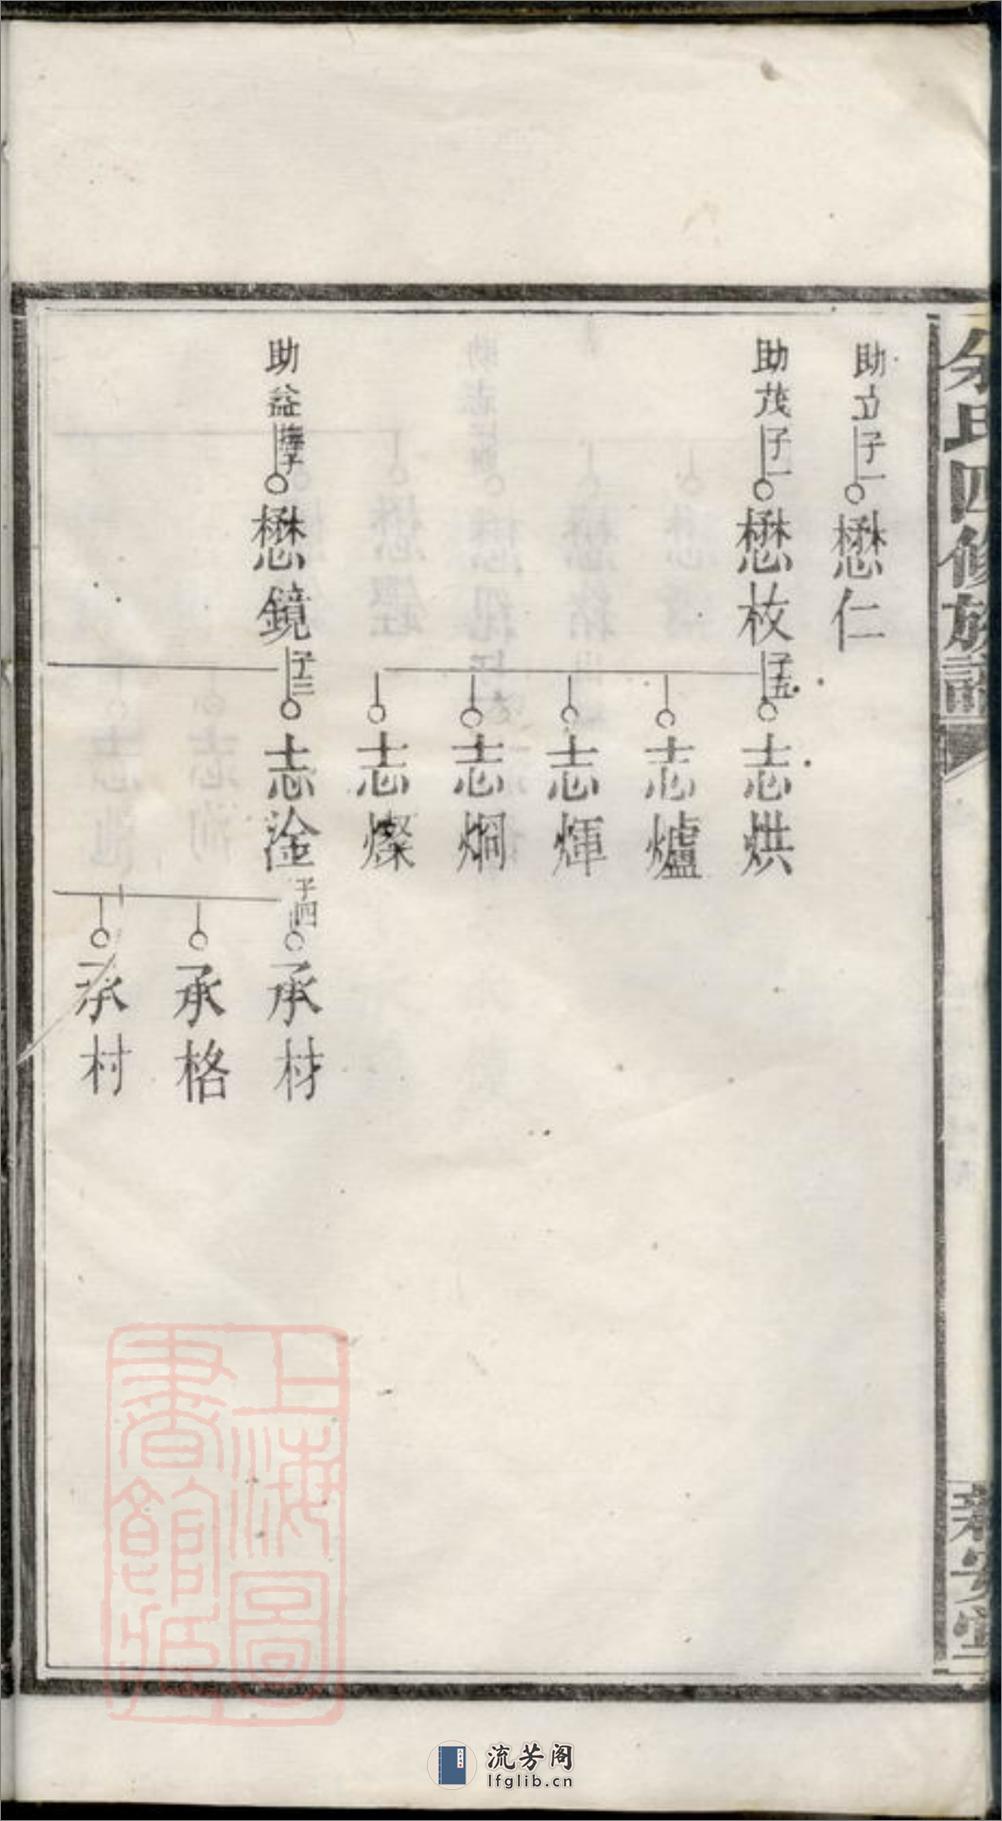 氏四修族譜
安堂
助立
子一
懋仁
助茂
子一
懋枚
子五
志烘
志爐
志煇
志炯
志燦
助益
懋鏡
子三
志淦
子四
承材
承格
承村
上海圖
書館藏
流芳阁
lfglib.cn